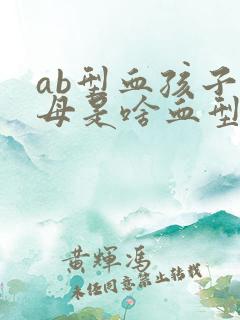 ab型血孩子
母是啥血型
黄輝馮
未经同意禁止转载